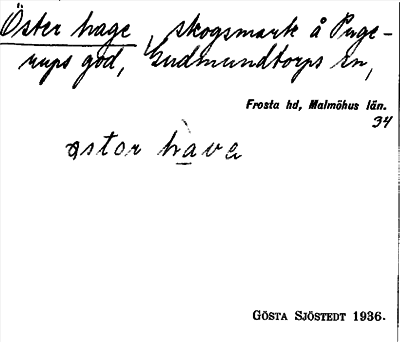 Öster hage, skogsmark å Puge-
rups god, Gudmundtorps sn,
Frosta hd, Malmöhus län.
34
østor hava
GÖSTA SJÖSTEDT 1936.